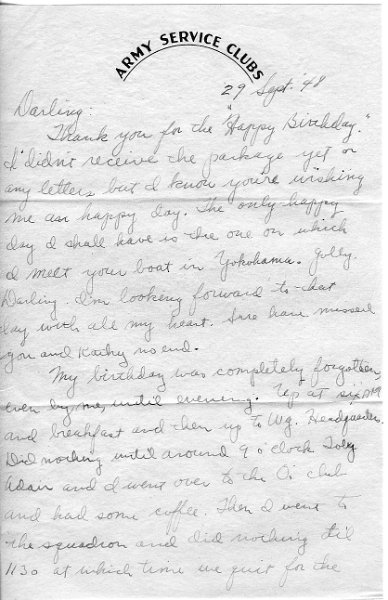 ARMY SERVICE CLUBS
29 Sept. '48
Darling:
Thank you for the "Happy Birthday."
I didn't receive the package yet or
any letters but I know you're wishing
me an happy day. The only happy
day I shall have is the one on which
I meet your boat in Yokohama. Golly
Darling. I'm looking forward to that
day with all my heart. Sure have missed
you and Kathy no end.
My birthday was completely forgotten,
even by me, until evening. Up at six
and breakfast and then up to Wg. Headquarters.
Did nothing until around 9 o'clock
Adair and I went over to the O's club
and had some coffee. Then I went to
the squadron and did nothing til
1130 at which time we quit for the